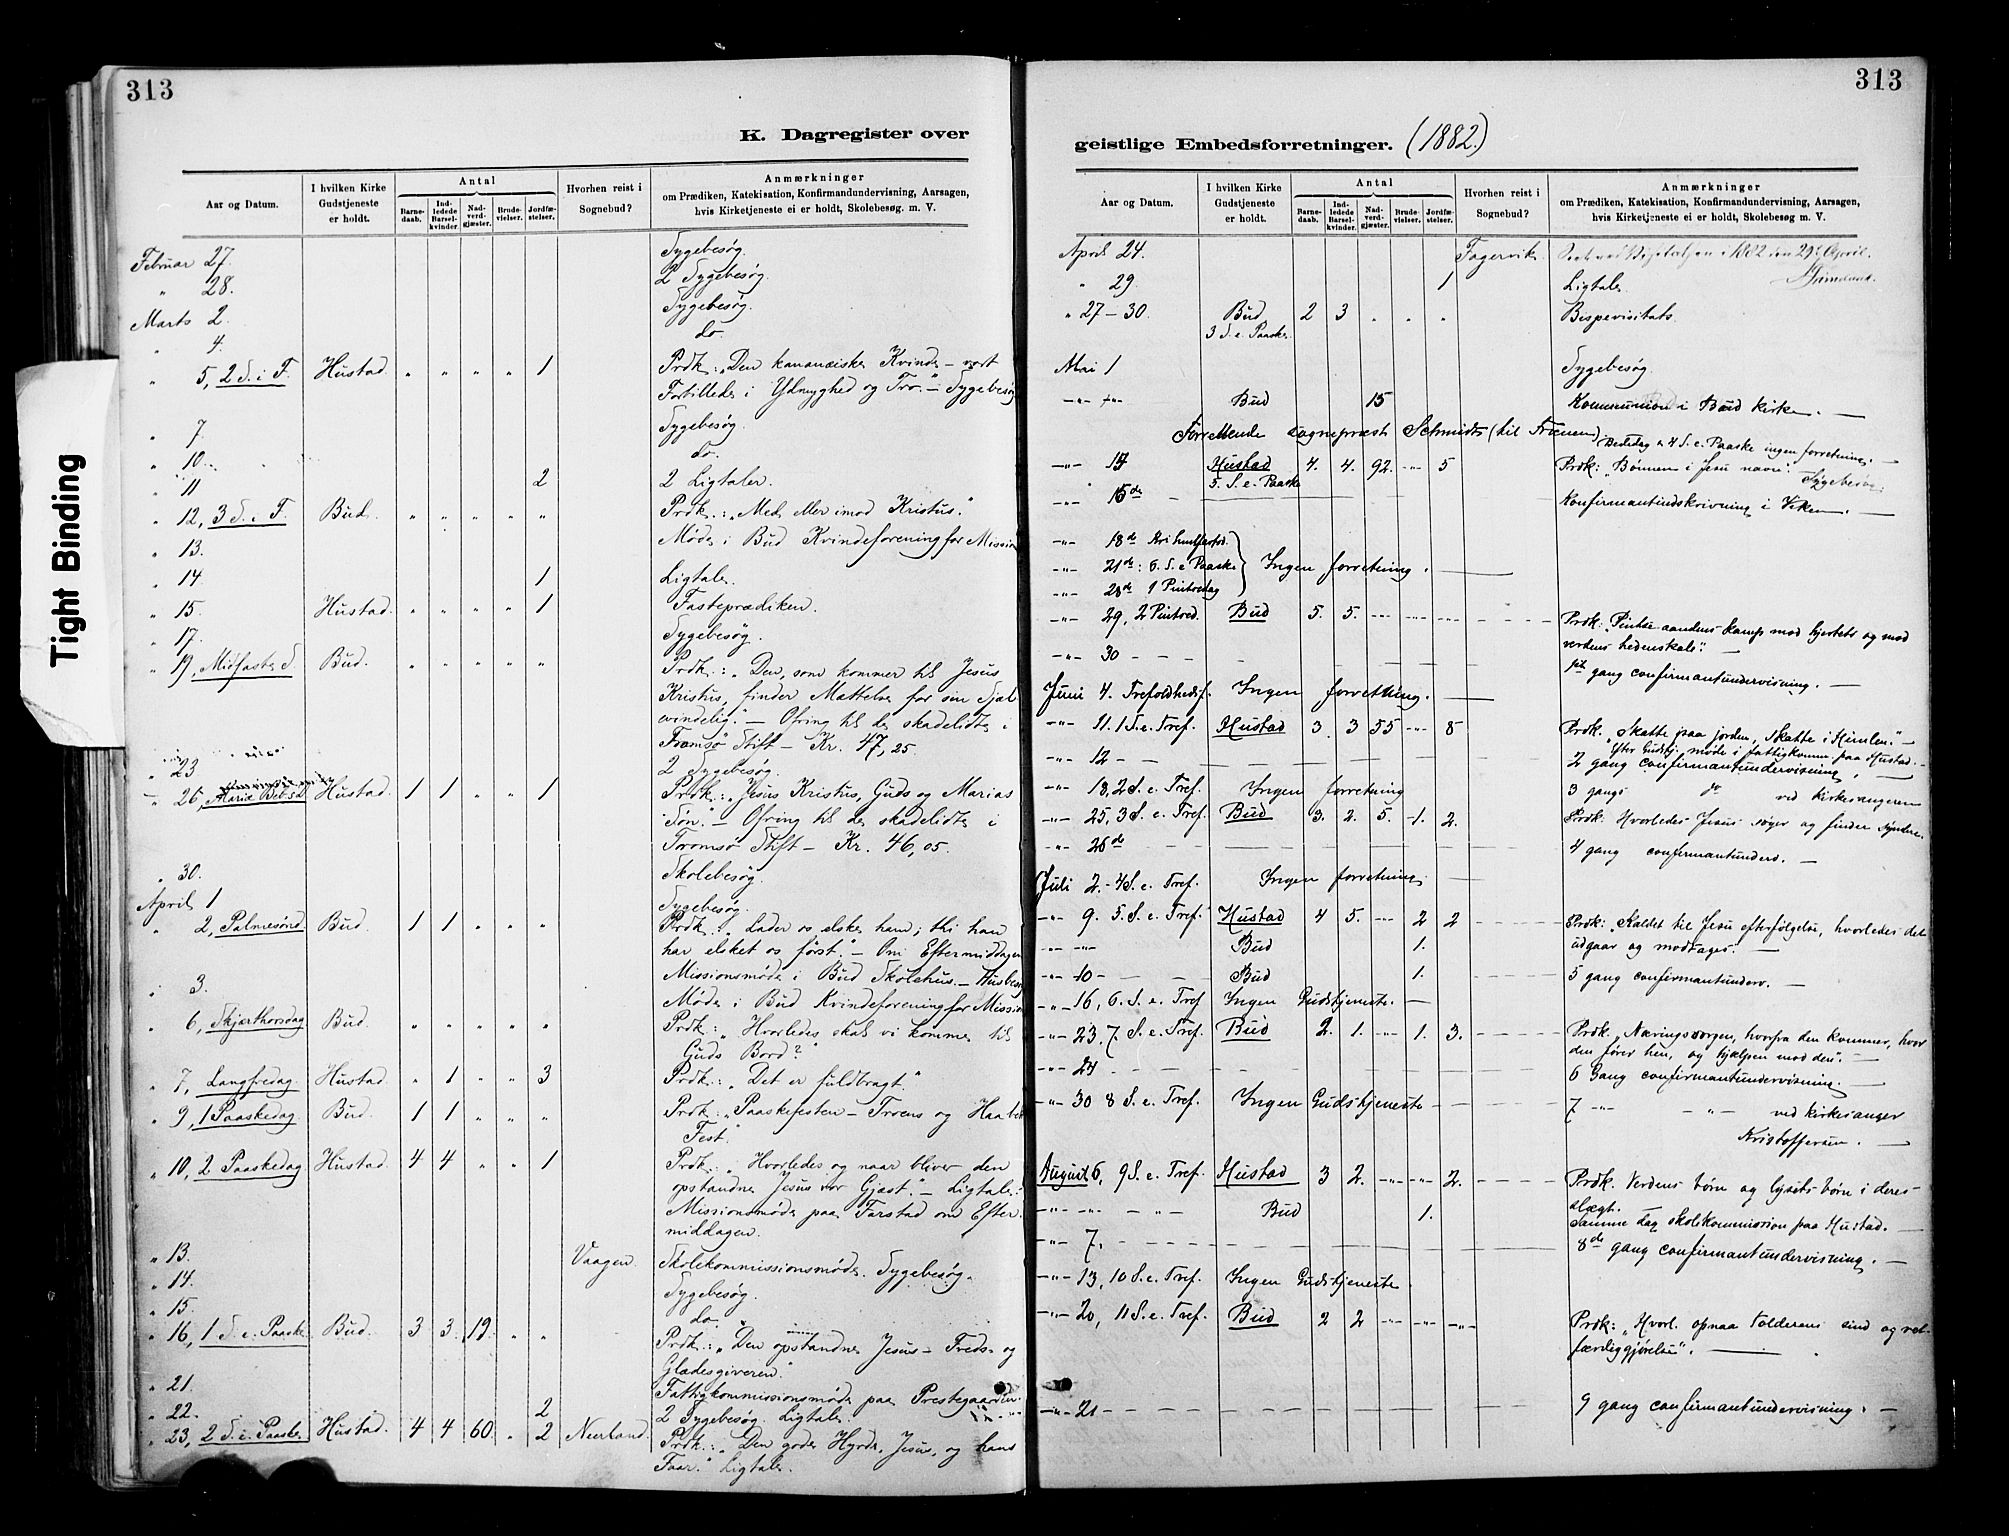 313
K. Dagregister over
Aar og Datum.
I hvilken Kirke Gudstjeneste er holdt.
Antal
Barnedaab.
Indledede Barselkvinder.
Nadverdgjæster.
Brudevielser.
Jordfæstelser.
Hvorhen reist i Sognebud?
Anmærkninger
om Prædiken, Katekisation, Konfirmandundervisning, Aarsagen,
hvis Kirketjeneste ei er holdt, Skolebesøg. m. V.
Februar 27. Sygebesøg.
" 28. 2 Sygebesøg.
Marts 2. Sygebesøg.
" 4. do.
" 5, 2 S. i F. Hustad " " " " 1 Prdk.: "Den kananæiske Kvinde – vort
Forbillede i Ydmyghed og Tro." – Sygebesøg
" 7. Sygebesøg.
" 10. do.
" 11 2 2 Ligtaler.
" 12, 3 S. i F. Bud. " " " " " Prdk.: "Med eller imod Kristus".
" 13. Møde i Bud Kvindeforening for Mission
" 14 1 Ligtale.
" 15. Hustad. " " " " 1 Fasteprædiken.
" 17. Sygebesøg.
" 19, Midfaste S. Bud. " " " " " Prdk.: "Den, som kommer til Jesus
Kristus, finder Mættelse for sin Sjæl
– Ofring til de skadelidte i
Tromsø Stift – Kr. 47,25
" 23 2 Sygebesøg.
" 26, Mariæ Beb. S. Hustad. 1 1 " " 1 Prdk.: "Jesus Kristus, Guds og Marias
Søn." – Ofring til de skadelidte i
Tromsø Stift – Kr. 46,05.
" 30. Skolebesøg.
April 1 Sygebesøg.
" 2, Palmesønd. Bud. 1 1 " " " Prdk.: "Lader os elske ham; thi han
har elsket os først." – Om Eftermiddagen
Missionsmøde i Bud Skolehus. – Husbesøg
" 3. Møde i Bud Kvindeforening for Mission
" 6, Skjærthorsdag Bud. " " " " " Prdk.: "Hvorledes skal vi komme til
Guds Bord?"
" 7, Langfredag. Hustad. " 1 " " 3 Prdk.: "Det er fuldbragt."
" 9, 1 Paaskedag Bud. 1 1 " " " Prdk.: "Paaskefesten – Troens og Haabets
Fest."
" 10, 2 Paaskedag Hustad. 4 4 " " 1 Prdk.: "Hvorledes og naar bliver den
opstandne Jesus vor Gjæst." – Ligtale.
Missionsmøde paa Farstad om Efter-
middagen.
" 13. Vaagen. Skolekommissionsmøde. Sygebesøg.
" 14. Sygebesøg.
" 15. do.
" 16, 1 S. e. Paaske. Bud. 3 3 19. " " Prdk.: "Den opstandne Jesus – Freds- og
Glædesgiveren."
" 21. Fattigkommissionsmøde paa Prestegaarden.
" 22. 2 2 Sygebesøg. Ligtale.
" 23, 2 S. e. Paaske. Hustad. 4 4 60. " 2 Neerland. Prdk.: "Den gode Hyrde, Jesus, og hans
Faar." Ligtale.
313
geistlige Embedsforretninger. (1882.)
Aar og Datum.
I hvilken Kirke Gudstjeneste er holdt.
Antal
Barnedaab.
Indledede Barselkvinder.
Nadverdgjæster.
Brudevielser.
Jordfæstelser.
Hvorhen reist i Sognebud?
Anmærkninger
om Prædiken, Katekisation, Konfirmandundervisning, Aarsagen,
hvis Kirketjeneste ei er holdt, Skolebesøg m. V.
April 24. Fagervik. 1882 den 29de April.
" 29. 1 Ligtale.
" 27–30. Bud 2 3 " " " Bispevisitats.
3 S. e. Paaske.
Mai 1 Sygebesøg.
Bud 15 Kommunion i Bud Kirke. –
Forrettende sognepræst Schmidt (til Frænen) Bededag & 4 S. e. Paaske ingen forretning. –
–"– 14 Hustad 4. 4. 92. –"– 5 Prdk: "Bønnen i Jesu navn". – Sygebesøg.
5. S. e. Paaske
–"– 15de Konfirmantindskrivning i Viken. –
–"– 18de Kri himlfartsd.
–"– 21de: 6. S. e Paaske Ingen forretning. –
–"– 28de 1 Pintsedag
–"– 29, 2 Pintsed. Bud 5. 5. Prdk: "Pintse-aandens kamp mod hjertets og mod
verdens hedenskab". –
–"– 30 1ste gang confirmantundervisning. –
Juni 4. Trefoldhedsf. Ingen forretning. –
–"– 11. 1 S. e. Tref. Hustad 3. 3 55 –"– 8 Prdk. "Skatte paa jorden, Skatte i Himlen." –
Efter Gudstj. møde i fattigkomm. paa Hustad. –
–"– 12 – 2 gang confirmantundervisning. –
–"– 18, 2 S. e. Tref. Ingen forretning 3 gangs do ved kirkesangeren
–"– 25, 3 S. e. Tref. Bud 3. 2. 5. –1. 2. Prdk: Hvorledes Jesus søger og finder syndere.
–"– 26de 4 gang confirmantunderv. –
Juli 2. – 4 S. e. Tref. Ingen forretning. –
–"– 9. 5. S. e. Tref. Hustad 4 5. –"– 2 2 Prdk: "Kaldet til Jesu efterfølgelse, hvorledes det
udgaar og modtages". –
–"– –"– Bud 1.
–"– 10 – Bud 1. 5 gang confirmantunderv. –
–"– 16, 6. S. e. Tref Ingen Gudstjeneste. –
–"– 23, 7. S. e. Tref. Bud 2. 1. –"– 1. 3. Prdk. "Næringssorgen, hvorfra den kommer, hvor
den fører hen, og hjælpen mod den". –
–"– 24 6 Gang confirmantundervisning. –
–"– 30 8 S. e. Tref. Ingen Gudstjeneste – 7 –"– –"– ved kirkesanger
Kristoffersen. –
August 6, 9 S. e. Tref. Hustad 3 2. –"– –"– 2. Prdk. Verdens børn og lysets børn i deres
slægt.
–"– –"– –"– Bud 1. Samme dag skolekommission paa Hustad. –
–"– 7. 8de gang confirmantundervisning. –
–"– 13, 10 S. e. Tref. Ingen Gudstjeneste
–"– 20, 11 S. e. Tref. Bud 2 2 –"– –"– –"– Prdk: "Hvorl. opnaa Tolderens sind og ret-
færdiggjørelse". –
–"– 21 9 gang confirmantundervisning. –
Tight Binding